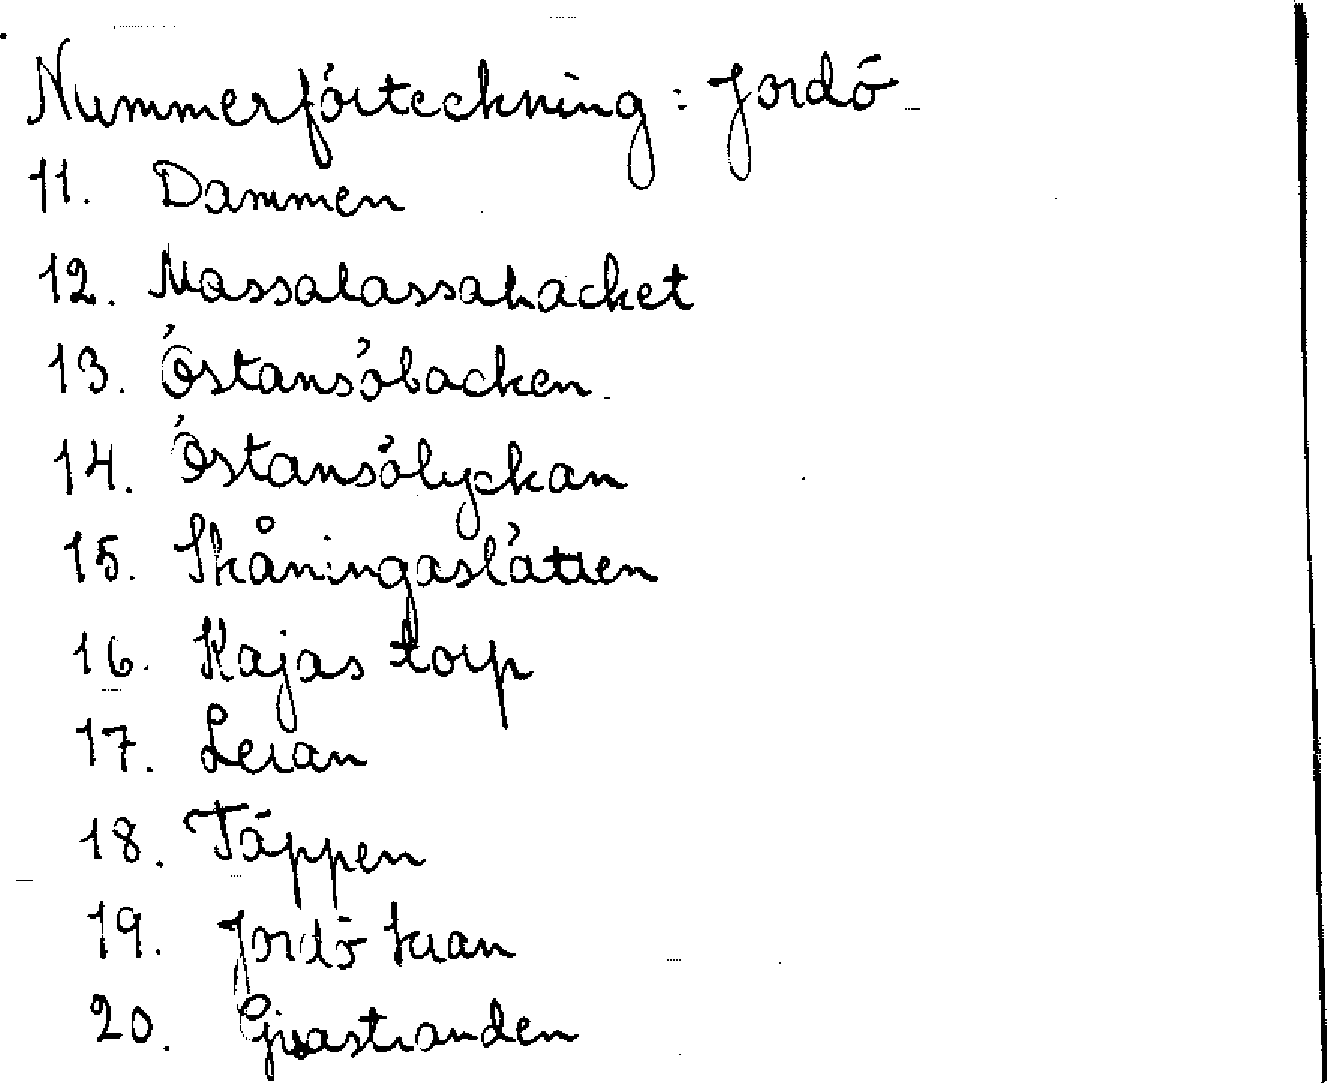 Nummerförteckning: Jordö
11. Dammen
12. Massalassahacket
13. Östansöbacken.
14. Östansölyckan
15. Skåningaslätten
16. Kajas torp
17. Leran
18. Täppen
19. Jordö kran
20.